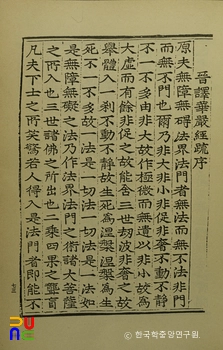 晉譯華嚴經疏序
原夫無障無碍法界法門者無法而無不法非門
而無不門也爾乃非大非小非促非奢不動不靜
不一不多由非大故作極微而無遺以非小故爲
大虛而有餘非促之故能含三世劫波非奢之故
舉體入一刹不動不靜故生死爲涅槃涅槃爲生
死不一不多故一法是一切法一切法是一法如
是無障無礙之法乃作法界法門之術諸大菩薩
之所入也三世諸佛之所出也二乘四果之聾盲
凡夫下士之所笑驚若人得入是法門者即能不
ⓒ 한국학중앙연구원